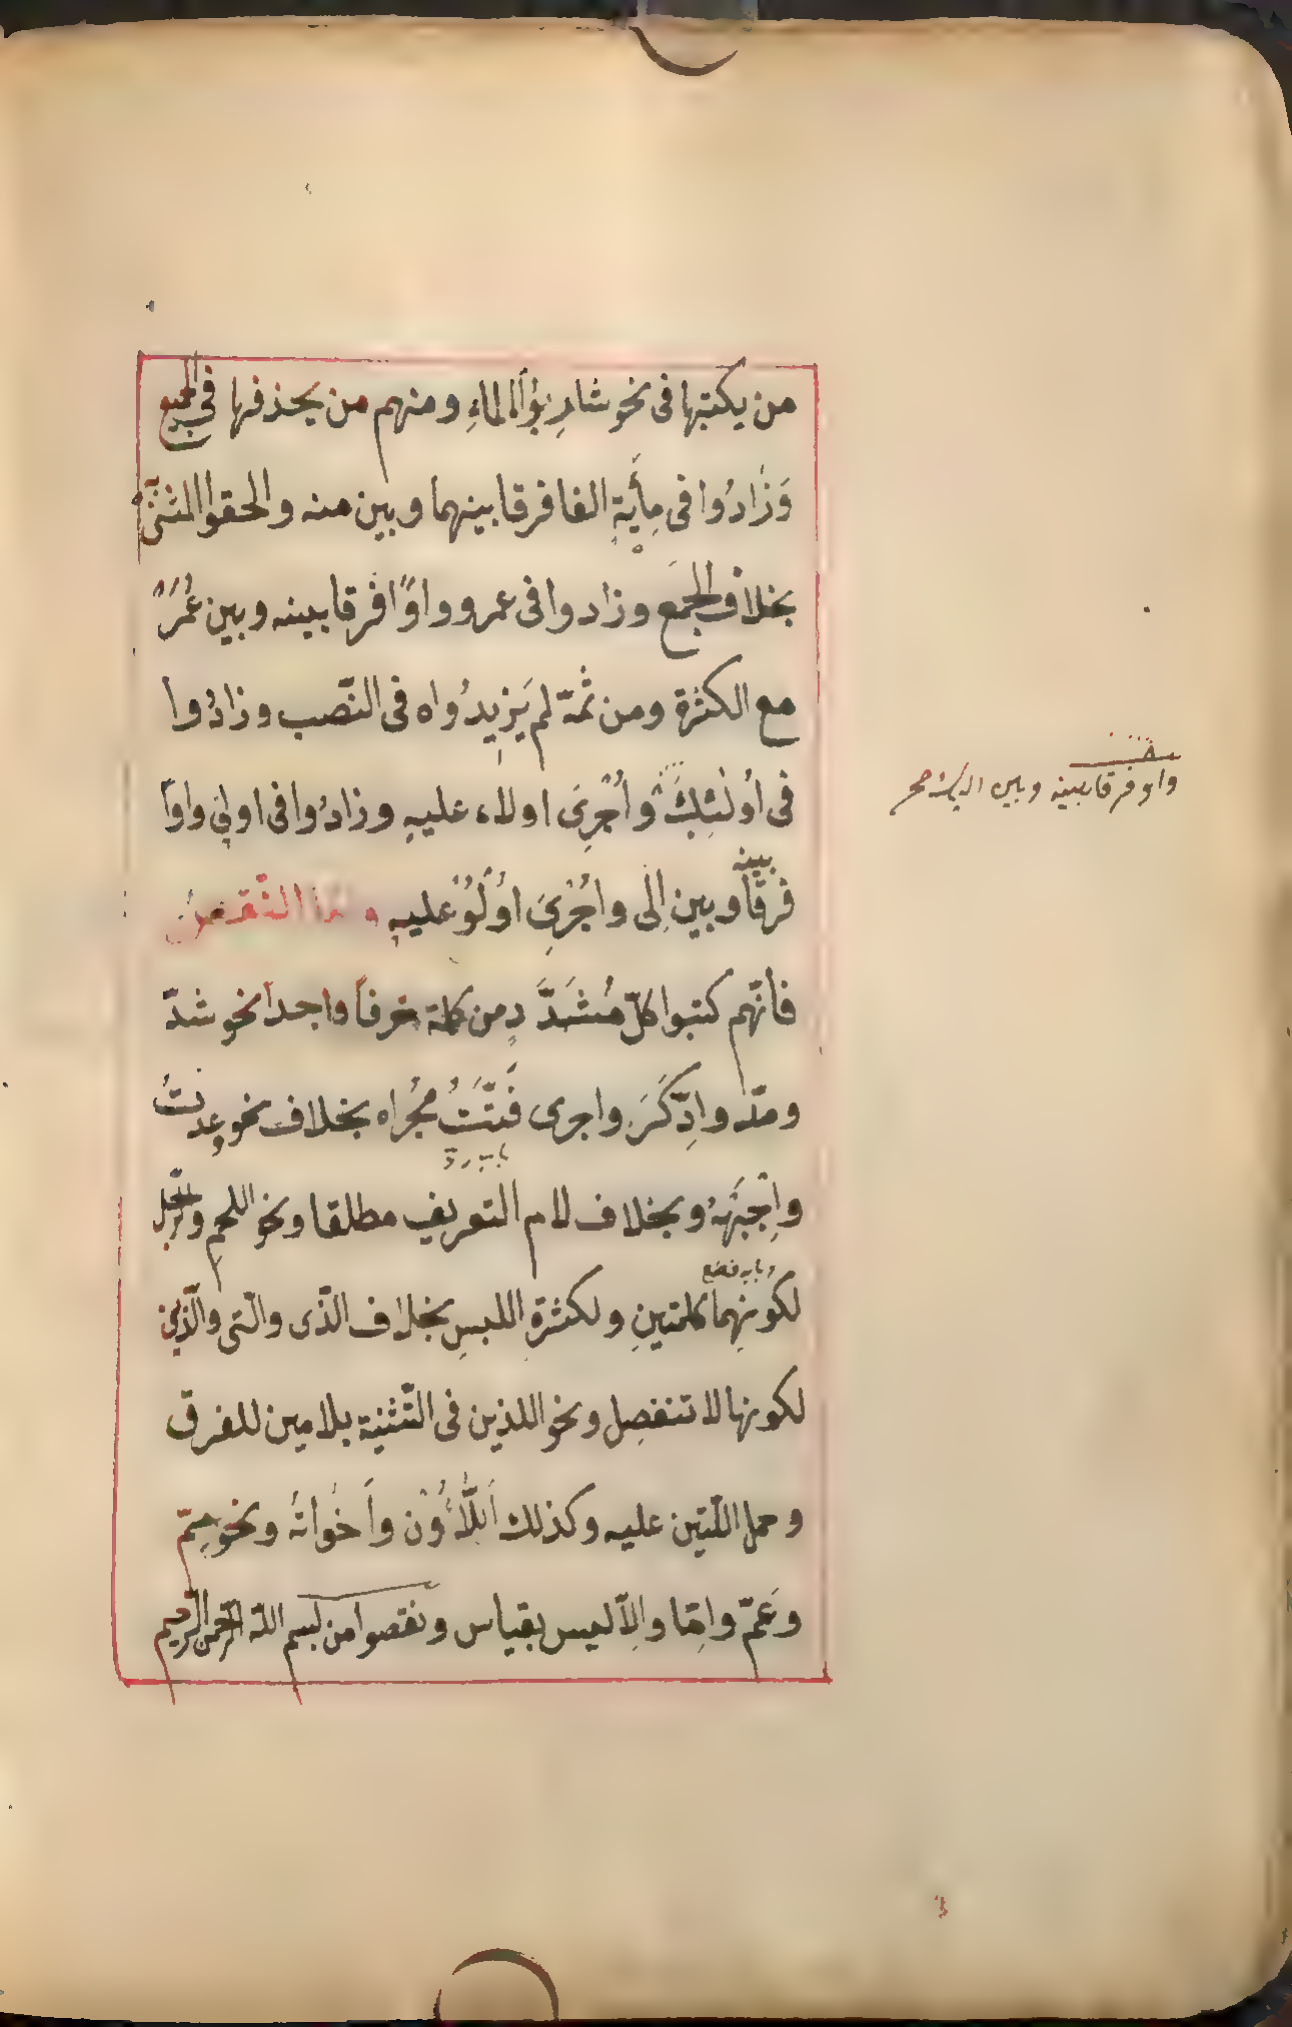 من يكتبها فى نحو شاربوا الماءِ ومنهم من يحذفها فى الجميع
وَزَادُوا فى مِأَيةٍ الفا فرقا بينهما وبين منه والحقوا المثنّىٰ
بخلاف الجمَع وزادوا فى عمرو واوًا فرقا بينه وبين عُمَرُ
مع الكثرة ومن ثمّة لم يَزِيدُواه فى النّصب وزادُوا
فى أولٰئِكَ وأُجْرِىَ اولاء عليهِ وزادُوا فى اولى واوًا
فرقًا بينه وبين اِلٰى واُجْرِىَ اُولُوْ عليهِ و النّقص
فانّهم كتبوا كلّ مُشَدَّدٍ من كلمة حرفاً واحداً نحو شدّ
ومدّ وادِّكَرَ واجرى قَتَتُّ مُجْراه بخلاف نحو وعدتُ
واِجْبَهْهُ وبخلاف لام التعريفِ مطلقا ونحو اللحمِ والرّجل
لكونِهِما كلمتينِ ولكثرةِ اللبسِ بخلاف الّذى والّتى والّذين
لكونها لا تنفصِل ونحو اللذين فى التّثنية بلامين للفرق
وحمل اللّتين عليه وكذلك اَللَّاءُوْن وأَخواتُه ونحو مِمّ
وعَمّ واِمّا واِلّا ليس بقياس ونقصوا من بسم اللّه الرّحمن الرّحيم
واو فرقا بينه وبين اليك صح